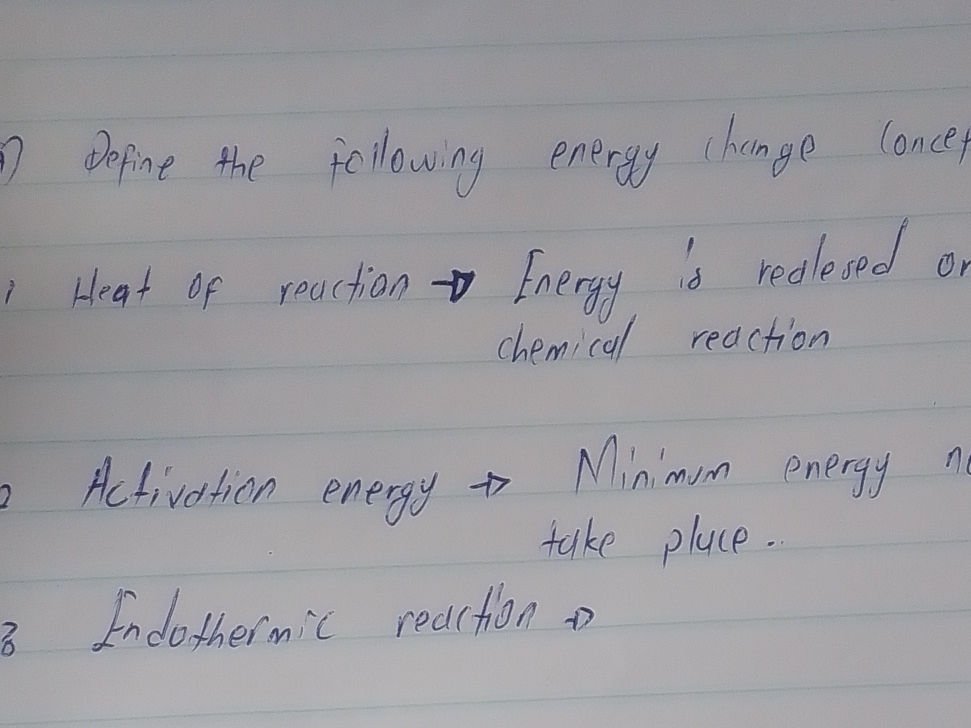 Define the following energy change
1 Heat of reaction → Energy is realesed or
chemical reaction
2 Activation energy → Minimum energy
take place..
3 Endothermic reaction →